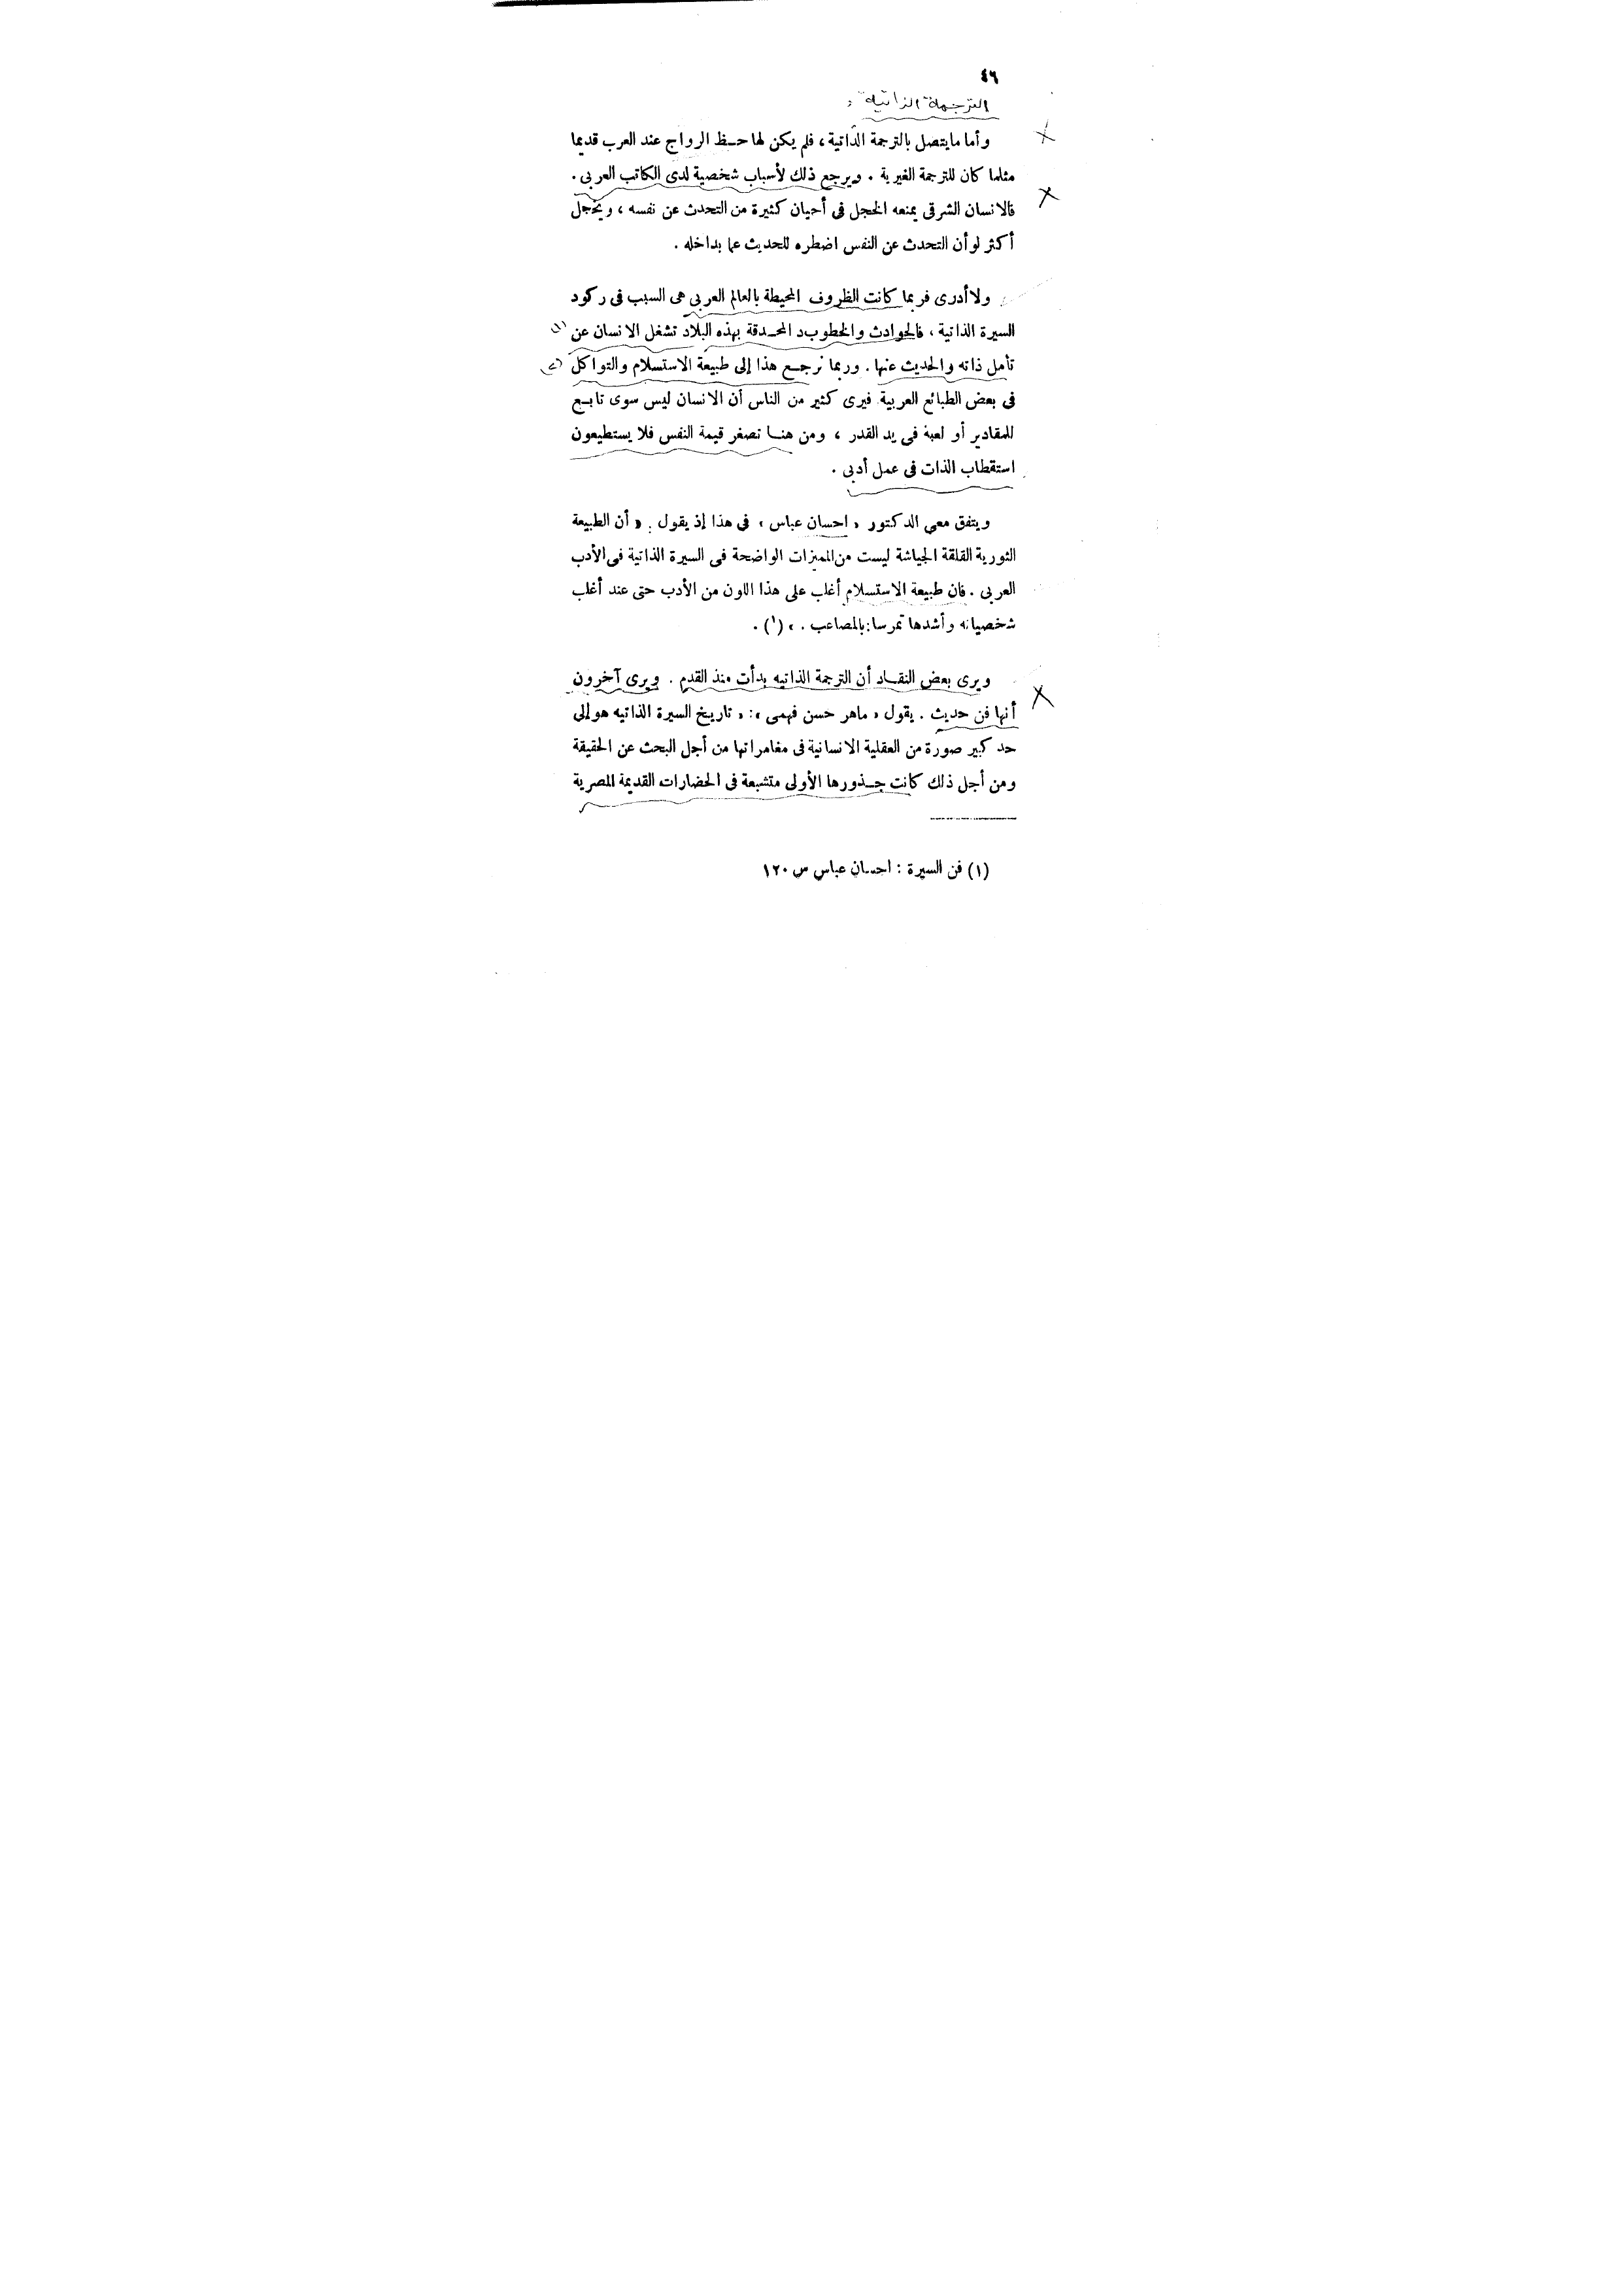 ٤٦
الترجمة الذاتية :
وأما ما يتصل بالترجمة الذاتية ، فلم يكن لها حظ الرواج عند العرب قديما
مثلما كان للترجمة الغيرية . ويرجع ذلك لأسباب شخصية لدى الكاتب العربى .
فالانسان الشرقى يمنعه الخجل فى أحيان كثيرة من التحدث عن نفسه ، ويخجل
أكثر لو أن التحدث عن النفس اضطره للحديث عما بداخله .
ولا أدرى فربما كانت الظروف المحيطة بالعالم العربى هى السبب فى ركود
السيرة الذاتية ، فالحوادث والخطوب المحدقة بهذه البلاد تشغل الانسان عن (١)
تأمل ذاته والحديث عنها . وربما نرجع هذا إلى طبيعة الاستسلام والتواكل (٢)
فى بعض الطبائع العربية فيرى كثير من الناس أن الانسان ليس سوى تابع
للمقادير أو لعبة فى يد القدر ، ومن هنا تصغر قيمة النفس فلا يستطيعون
استقطاب الذات فى عمل أدبى .
ويتفق معى الدكتور « احسان عباس » فى هذا إذ يقول : « أن الطبيعة
الثورية القلقة الجياشة ليست من المميزات الواضحة فى السيرة الذاتية فى الأدب
العربى . فان طبيعة الاستسلام أغلب على هذا اللون من الأدب حتى عند أغلب
شخصياته وأشدها تمرسا بالمصاعب . » (١) .
ويرى بعض النقاد أن الترجمة الذاتيه بدأت منذ القدم . ويرى آخرون
أنها فن حديث . يقول « ماهر حسن فهمى » : « تاريخ السيرة الذاتيه هو إلى
حد كبير صورة من العقلية الانسانية فى مغامراتها من أجل البحث عن الحقيقة
ومن أجل ذلك كانت جذورها الأولى متشعبة فى الحضارات القديمة المصرية
(١) فن السيرة : احسان عباس ص ١٢٠